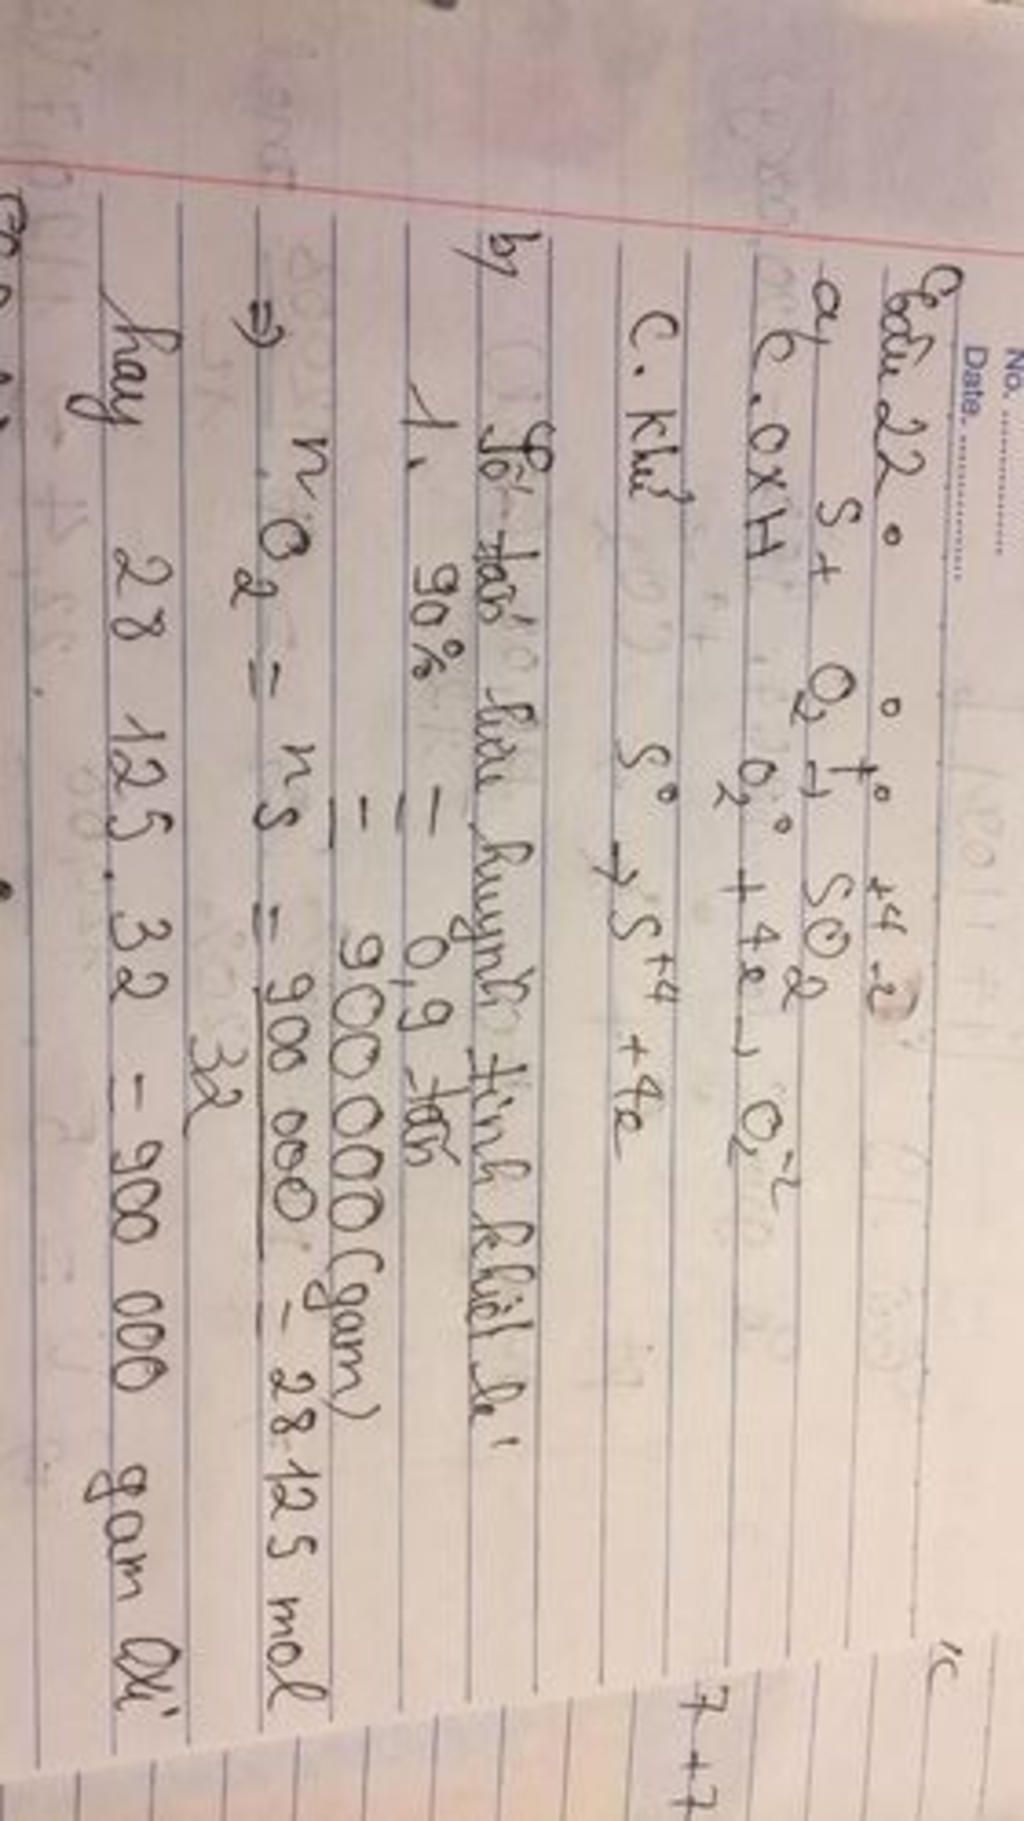 No. ..............
Date. ..............
Câu 22
0 0 t° +4 -2
a, S + O2 → SO2
C. OXH O2⁰ + 4e → O2⁻²
C. khử S⁰ → S⁺⁴ + 4e
b, Số tấn lưu huỳnh tinh khiết là
1. 90% = 0,9 tấn
= 900 000 (gam)
=> nO2 = nS = 900 000 = 28 125 mol
32
hay 28 125 . 32 = 900 000 gam
7 + 7